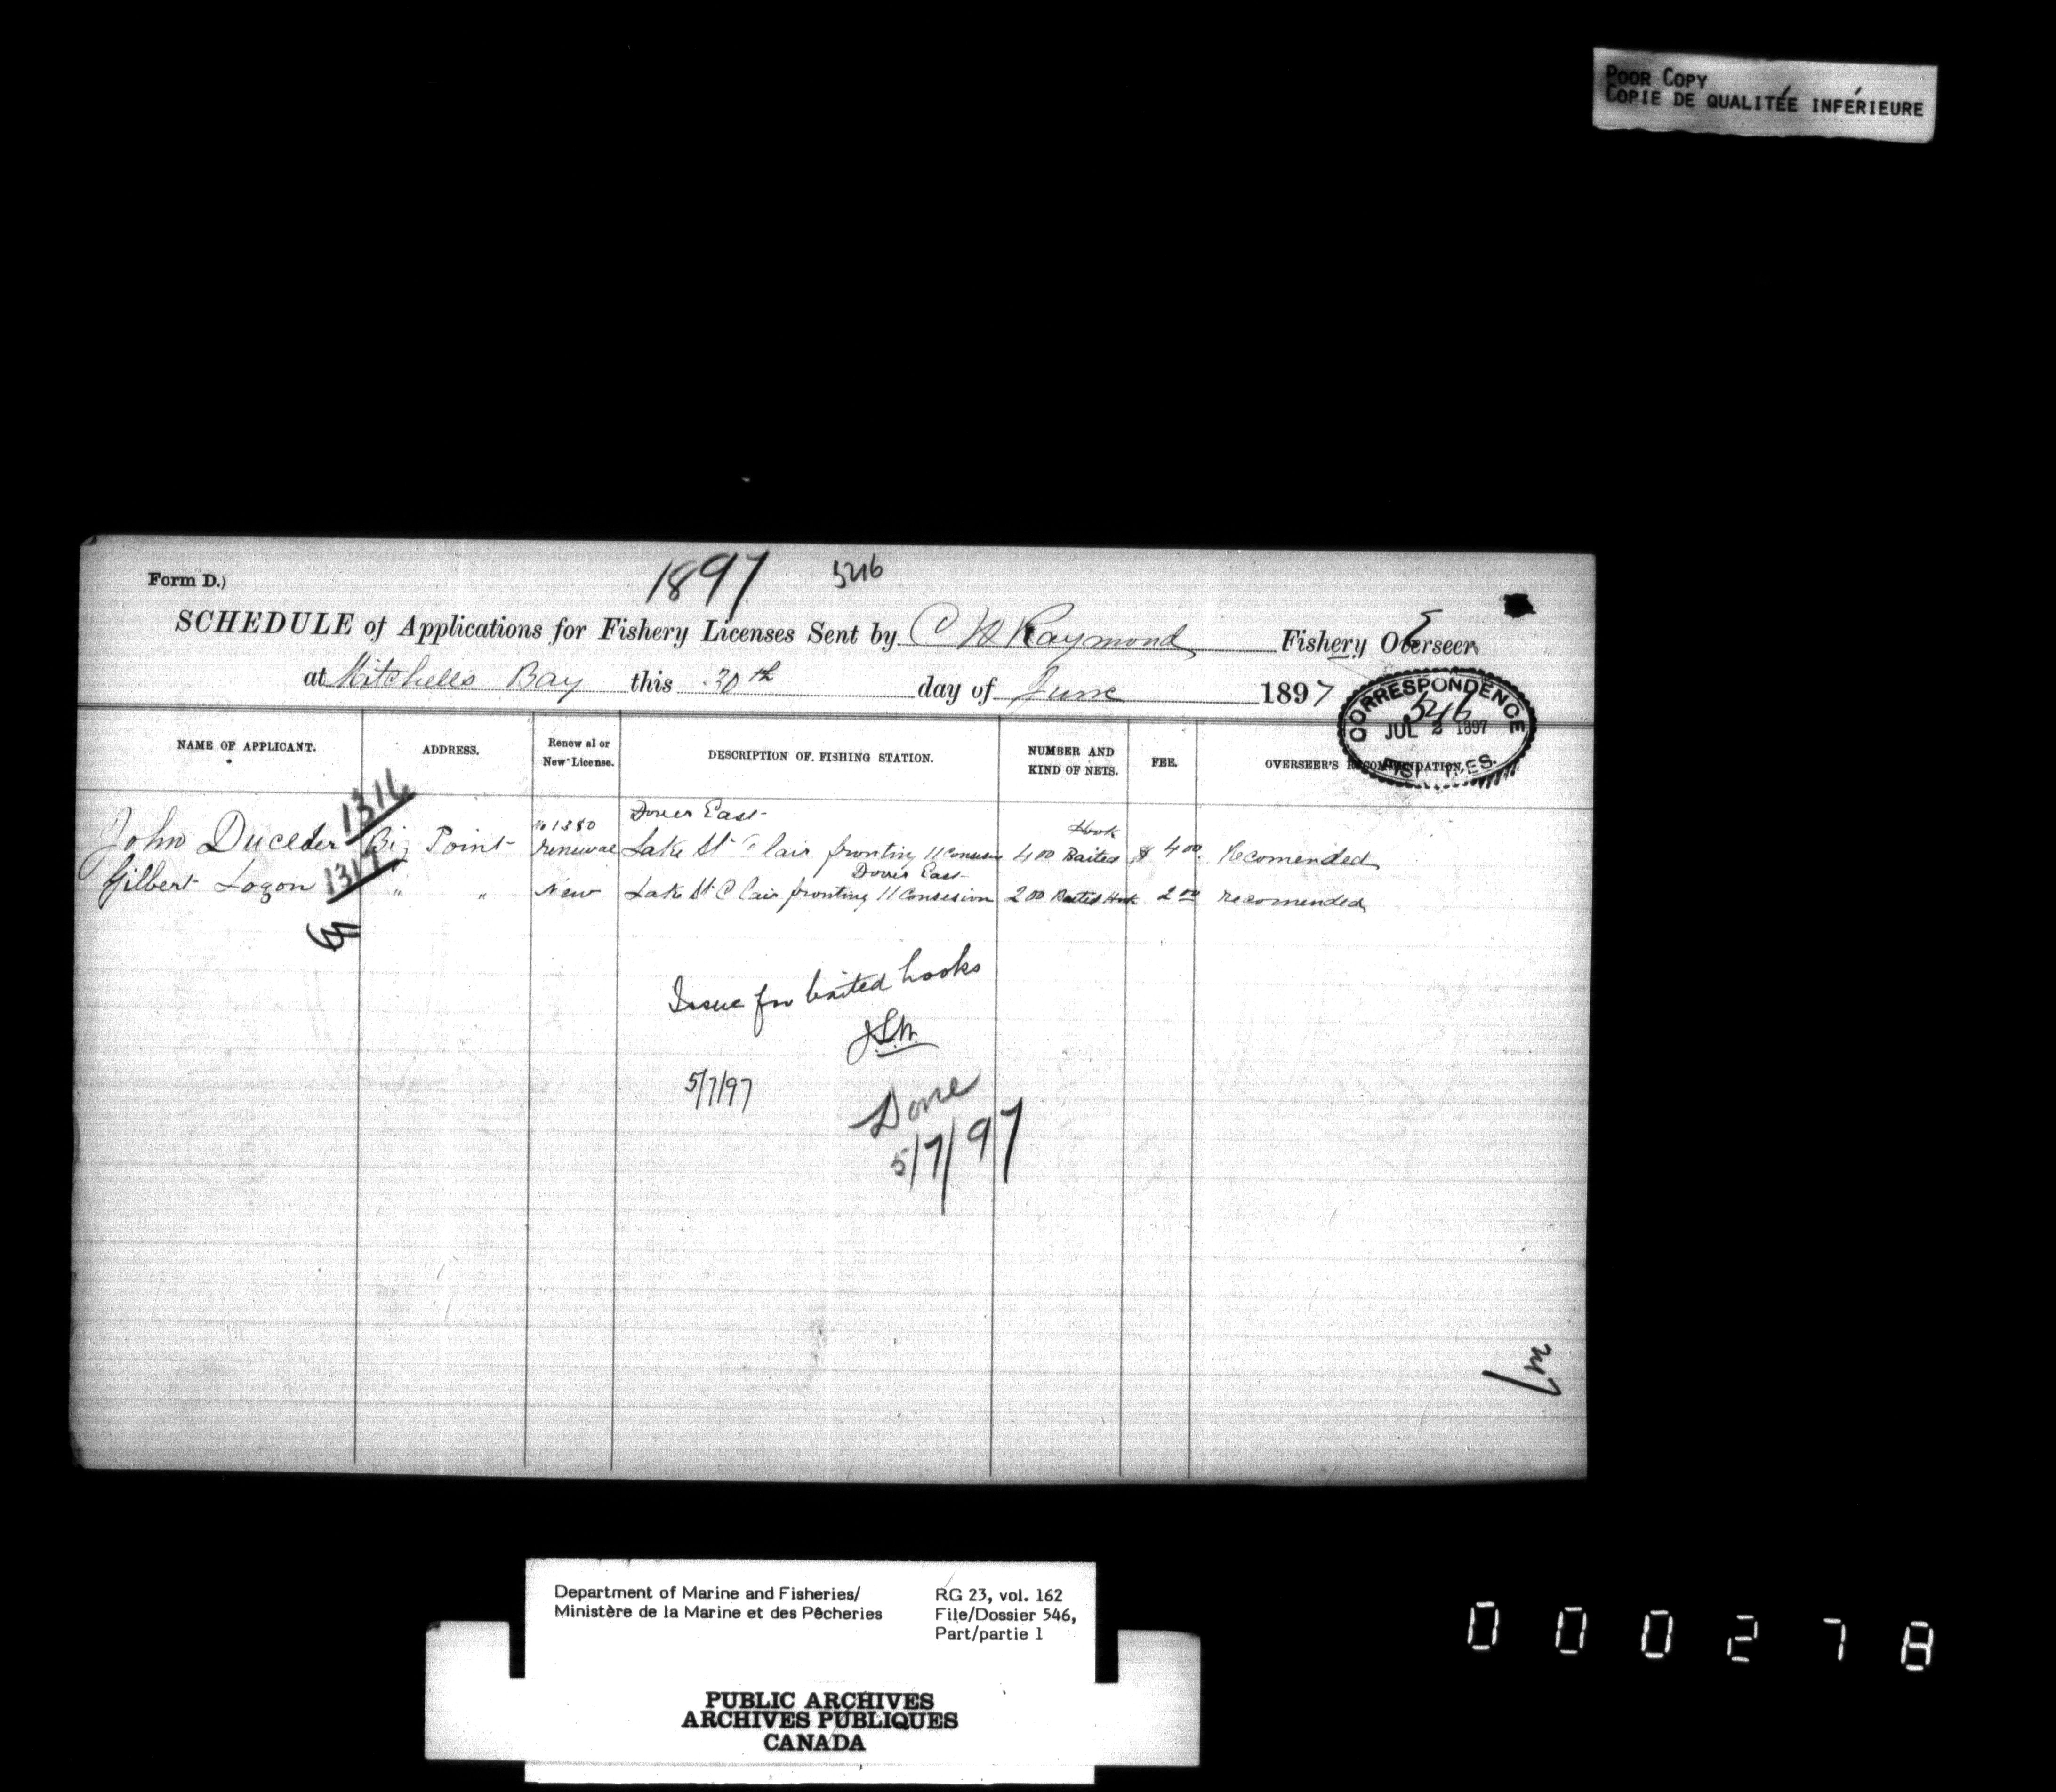 POOR COPY
COPIE DE QUALITÉE INFÉRIEURE
1897 546
Form D.)
SCHEDULE of Applications for Fishery Licenses Sent by C W Raymond Fishery Overseer
at Mitchells Bay this 30th day of June 1897
CORRESPONDENCE
546
JUL 2 1897
FISHERIES.
NAME OF APPLICANT. ADDRESS. Renewal or New License. DESCRIPTION OF FISHING STATION. NUMBER AND KIND OF NETS. FEE. OVERSEER'S RECOMMENDATION.
1316 No 1380 Dover East Hook
John Big Point renewal Lake St Clair fronting 11 400 Baited $ 4 00 Recomended
1317 Dover East
Gilbert Logon " " New Lake St Clair fronting 11 Consesion 200 Baited Hook 2 00 recomended
Issue for baited hooks
5/7/97
Done
5/7/97
Department of Marine and Fisheries/
Ministère de la Marine et des Pêcheries
RG 23, vol. 162
File/Dossier 546,
Part/partie 1
PUBLIC ARCHIVES
ARCHIVES PUBLIQUES
CANADA
000278